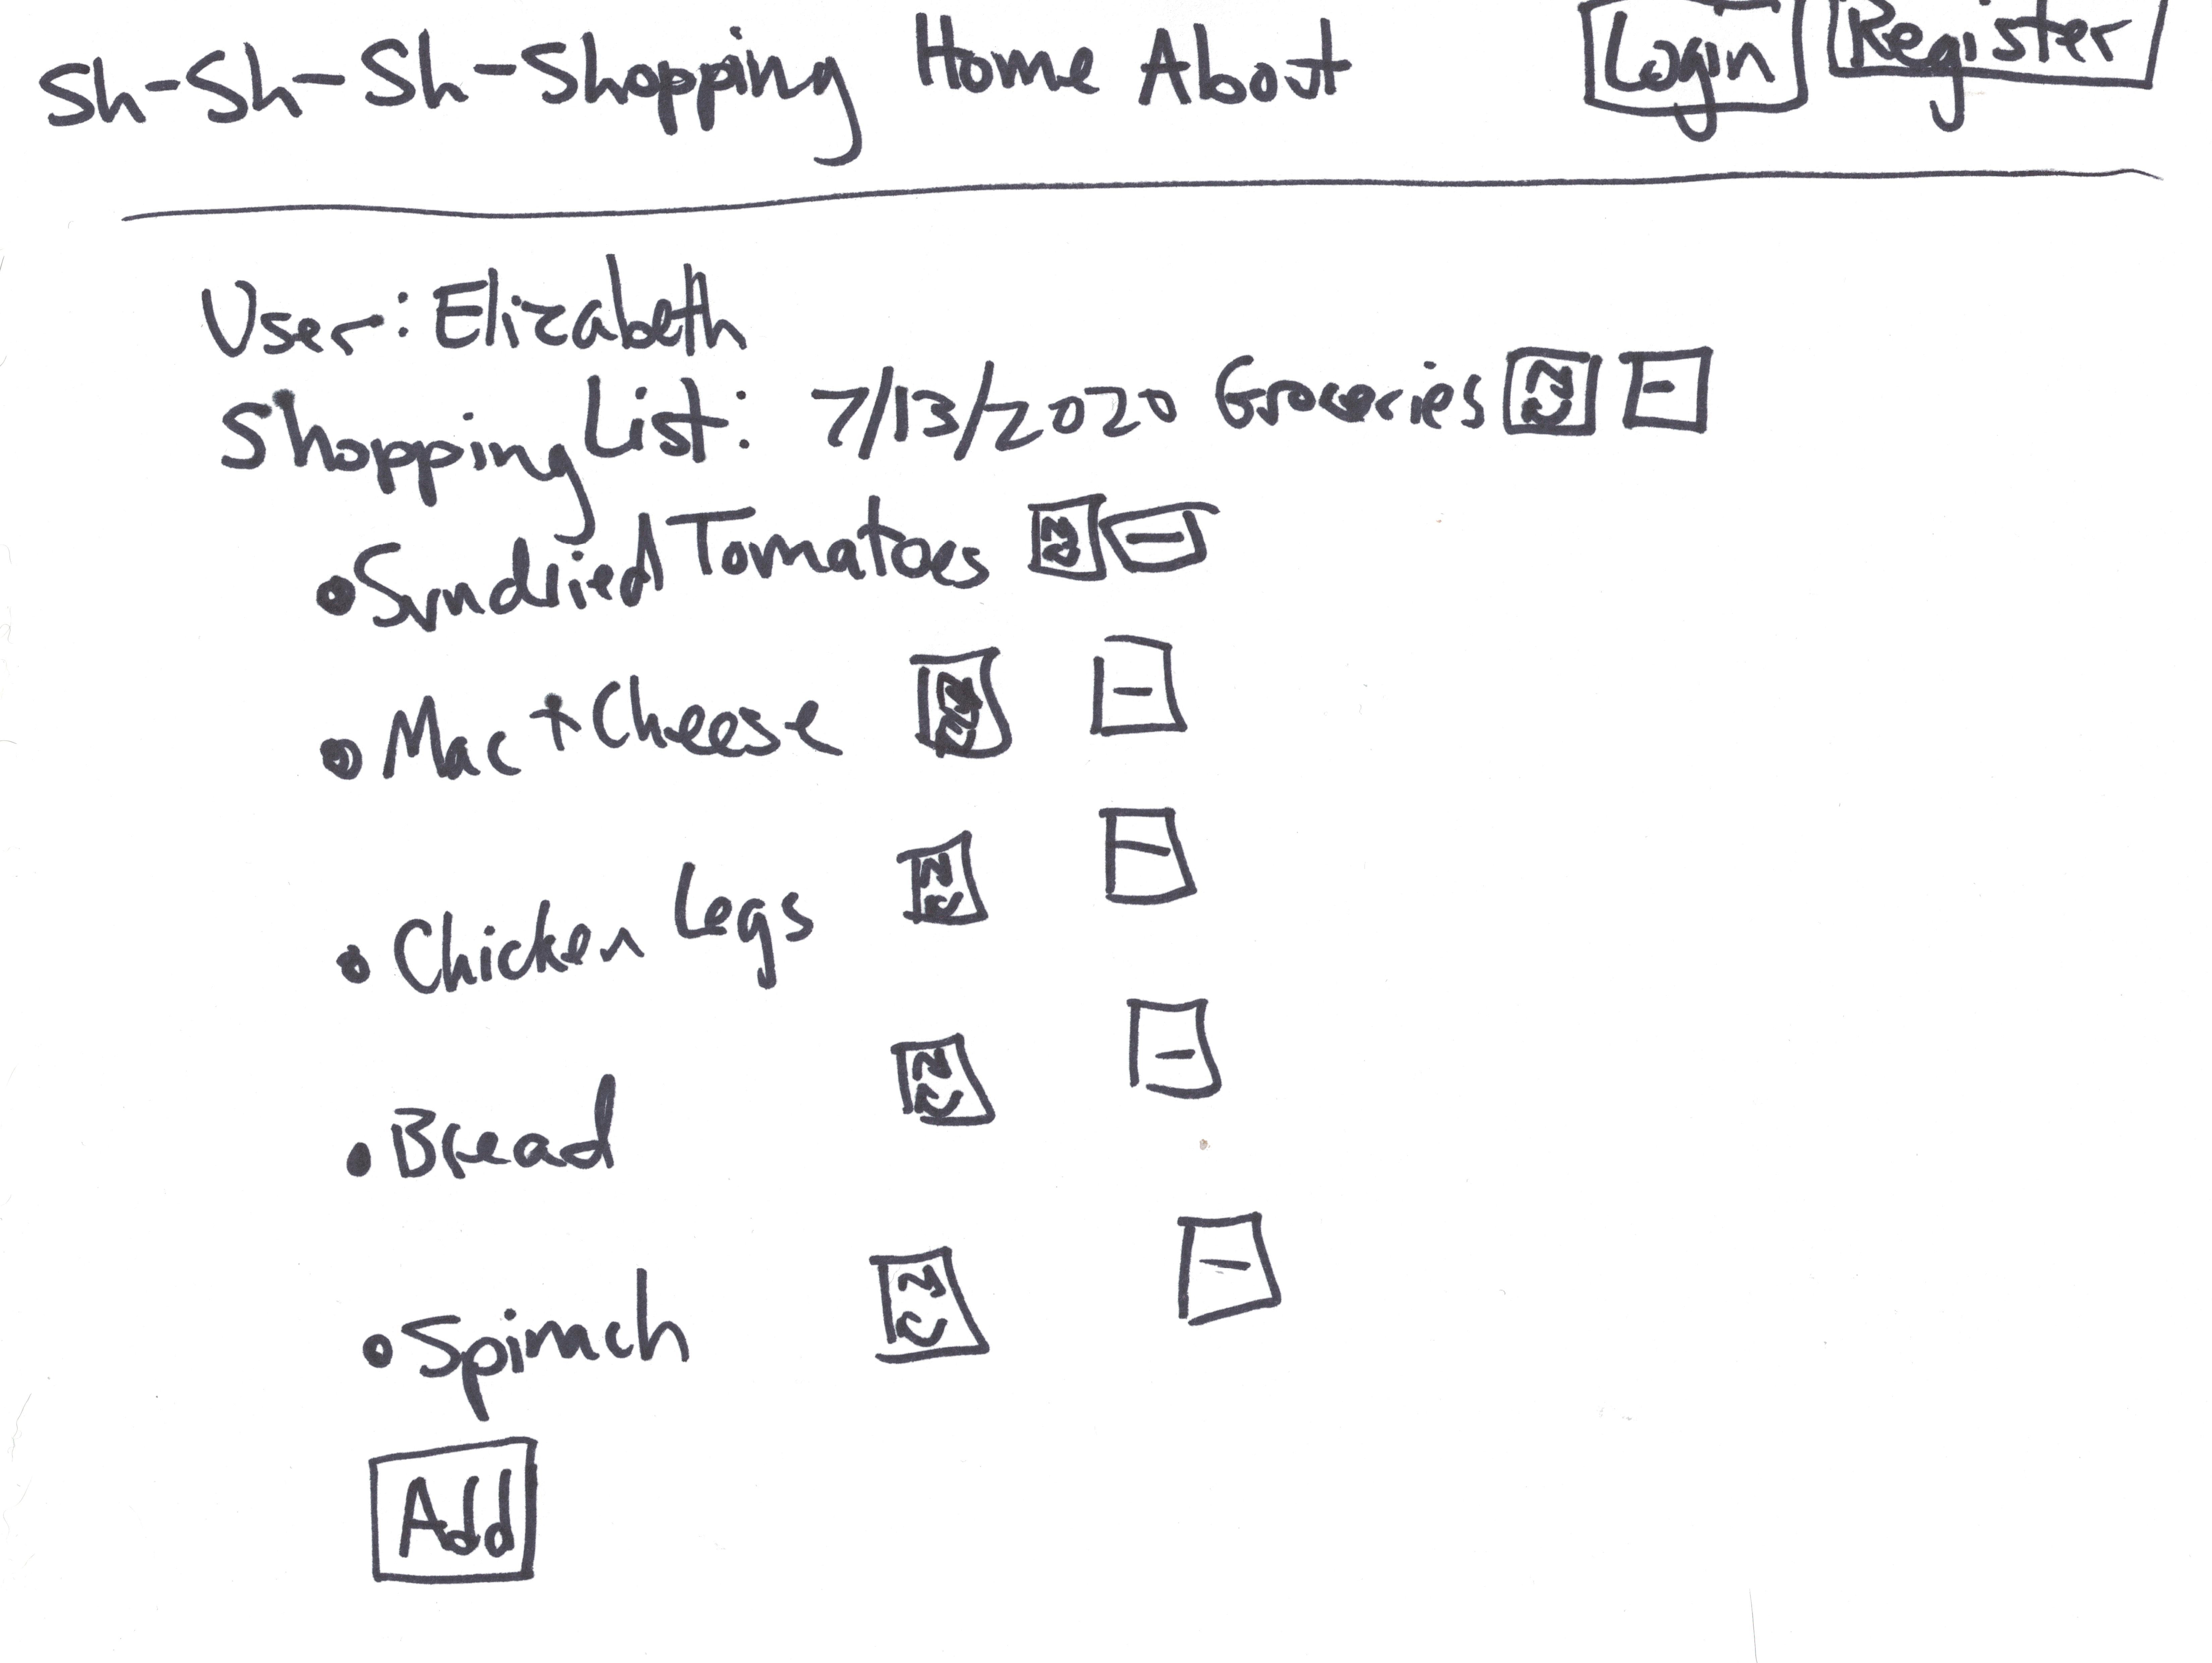 Sh-Sh-Sh-Shopping Home About Login Register
User: Elizabeth
Shopping List: 7/13/2020 Groceries -
Sundried Tomatoes -
Mac + Cheese -
Chicken Legs -
Bread -
Spinach -
Add